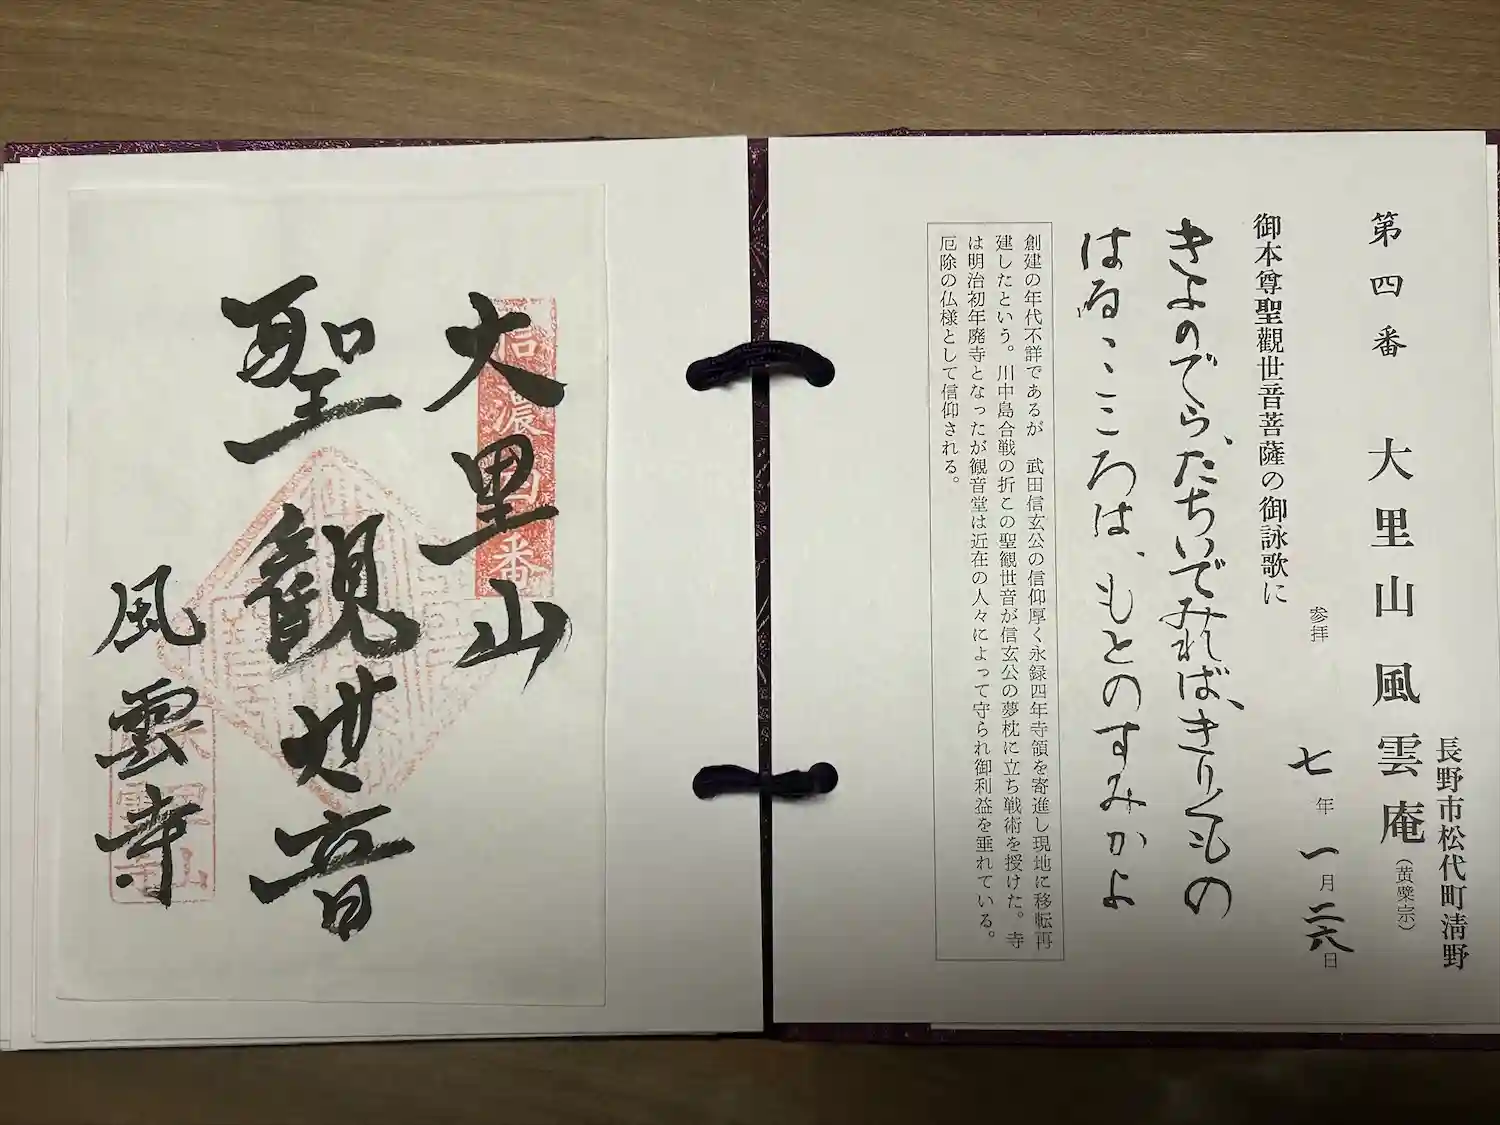 第四番 大里山風雲庵(黄檗宗)
長野市松代町清野
参拝 七年一月二六日
御本尊聖觀世音菩薩の御詠歌に
きよのでら、たちいでみれば、きりくもの
はるゝこころは、もとのすみかよ
創建の年代不詳であるが 武田信玄公の信仰厚く永録四年寺領を寄進し現地に移転再
建したという。川中島合戦の折この聖観世音が信玄公の夢枕に立ち戦術を授けた。寺
は明治初年廃寺となったが観音堂は近在の人々によって守られ御利益を垂れている。
厄除の仏様として信仰される。
信濃四番
大里山
聖観世音
風雲寺